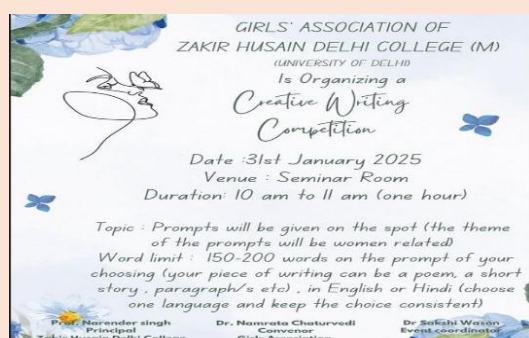 GIRLS' ASSOCIATION OF
ZAKIR HUSAIN DELHI COLLEGE (M)
(UNIVERSITY OF DELHI)
Is Organizing a
Creative Writing
Competition
Date :31st January 2025
Venue : Seminar Room
Duration: 10 am to 11 am (one hour)
Topic : Prompts will be given on the spot (the theme
of the prompts will be women related)
Word limit : 150-200 words on the prompt of your
choosing (your piece of writing can be a poem, a short
story , paragraph/s etc) , in English or Hindi (choose
one language and keep the choice consistent)
Prof. Narender singh Dr. Namrata Chaturvedi Dr Sakshi Wason
Principal Convenor Event coordinator
Zakir Husain Delhi College Girls Association